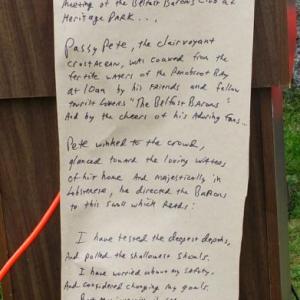 meeting of the Belfast Barons Club at
Heritage PARK....
Passy Pete, the clairvoyant
CROSTACEAN, was coaxed from the
fertile waters of the Penobscot Bay
at 10am by his friends and fellow
tourist lovers "The Belfast Barons"
Aid by the cheers of his Adoring Fans...
Pete winked to the crowd,
glanced toward the loving waters
of his home And majestically in
Lobsterese, he directed the Barons
to this scroll which Reads:
I have tested the deepest depths,
And polled the shallowest shoals.
I have worried about my safety,
And considered changing my goals.